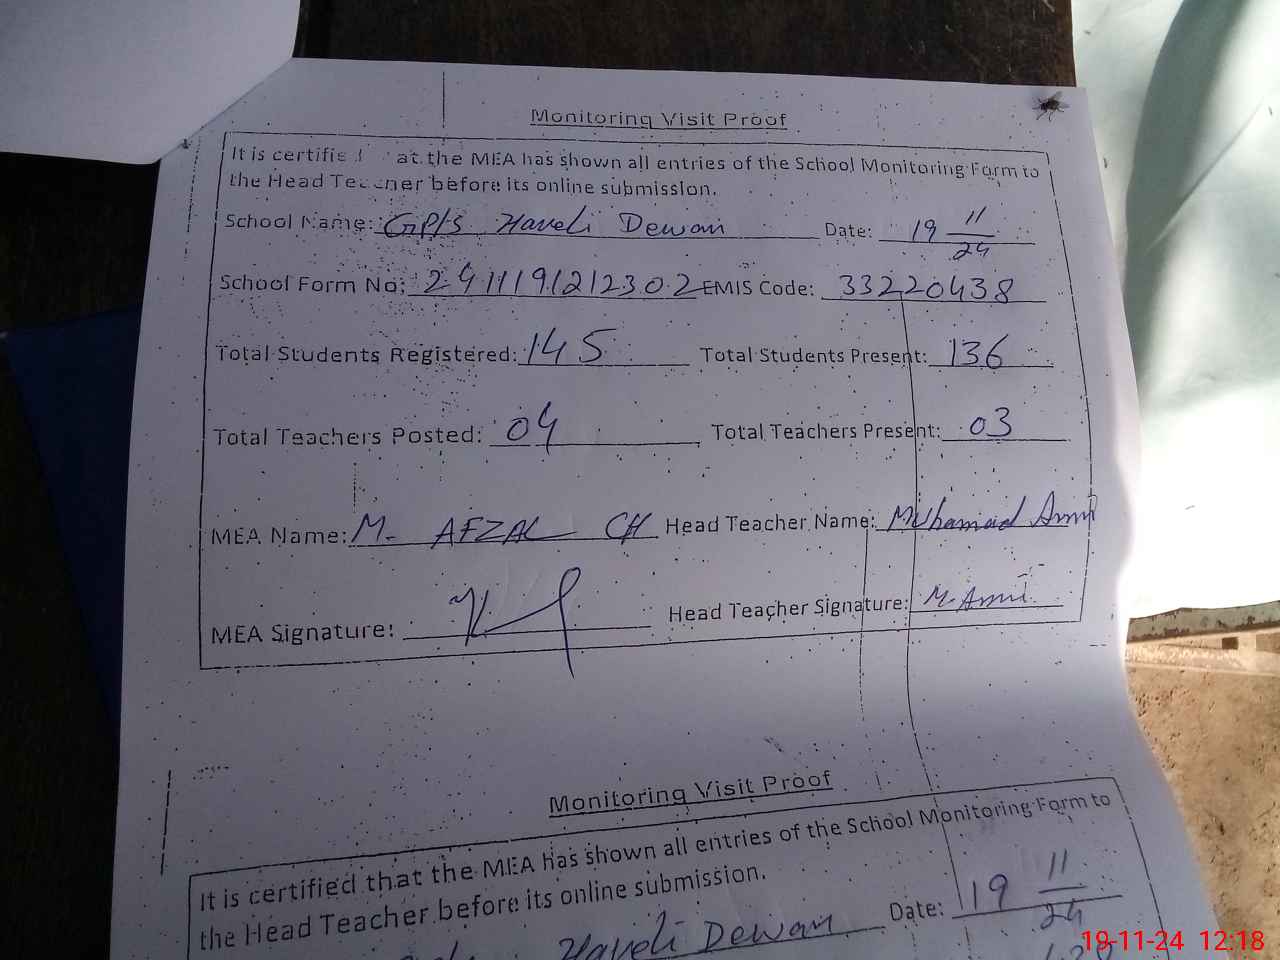 Monitoring Visit Proof
It is certified that the MEA has shown all entries of the School Monitoring Form to
the Head Teacher before its online submission.
School Name: GP/S Haveli Dewan Date: 19 11/24
School Form No: 2411191212302 EMIS Code: 33220438
Total Students Registered: 145 Total Students Present: 136
Total Teachers Posted: 04 Total Teachers Present: 03
MEA Name: M. AFZAL CH Head Teacher Name: Muhamad
MEA Signature: Head Teacher Signature: M.
Monitoring Visit Proof
It is certified that the MEA has shown all entries of the School Monitoring Form to
the Head Teacher before its online submission.
Haveli Dewan Date: 19 11/24
19-11-24 12:18